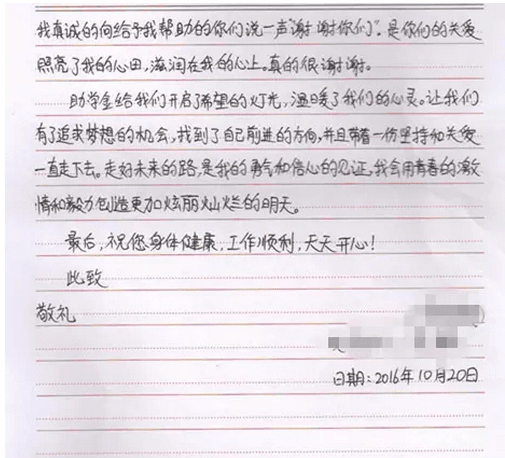 我真诚的向给予我帮助的你们说一声"谢谢你们"。是你们的关爱
照亮了我的心田，滋润在我的心上。真的很谢谢。
助学金给我们开启了希望的灯光，温暖了我们的心灵。让我们
有了追求梦想的机会，找到了自己前进的方向，并且带着一份坚持和关爱
一直走下去。走好未来的路，是我的勇气和信心的见证。我会用青春的激
情和毅力创造更加炫丽灿烂的明天。
最后，祝您身体健康，工作顺利，天天开心！
此致
敬礼
日期：2016年10月20日